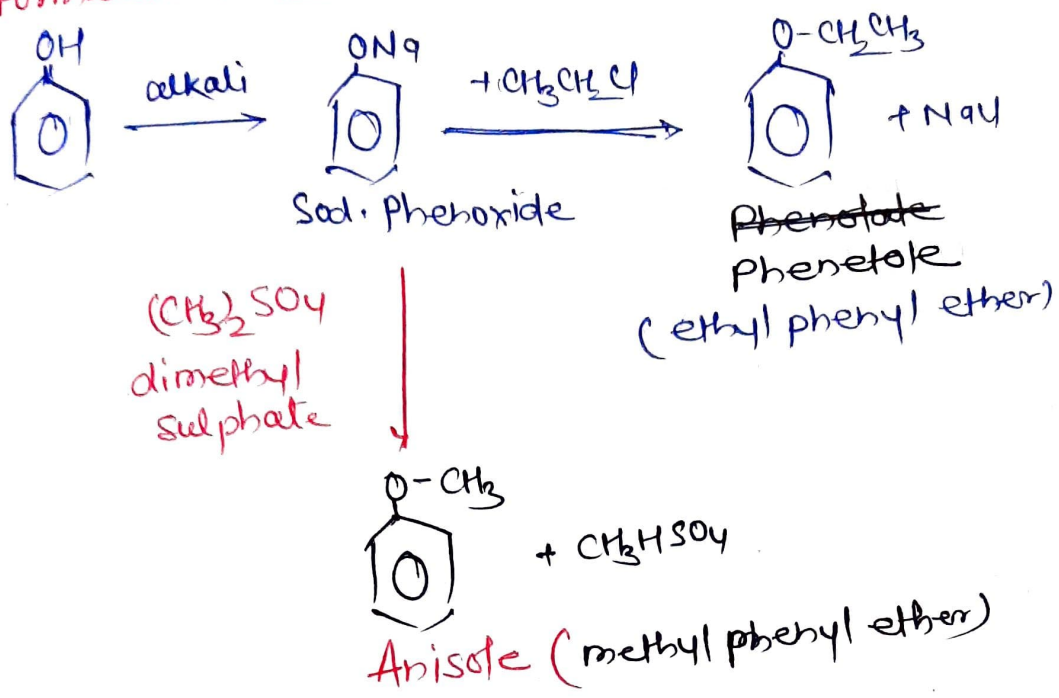 OH
alkali
ONa
+ CH3CH2Cl
O-CH2CH3
+ NaCl
Sod. Phenoxide
Phenetole
(ethyl phenyl ether)
(CH3)2SO4
dimethyl
sulphate
O-CH3
+ CH3HSO4
Anisole (methyl phenyl ether)